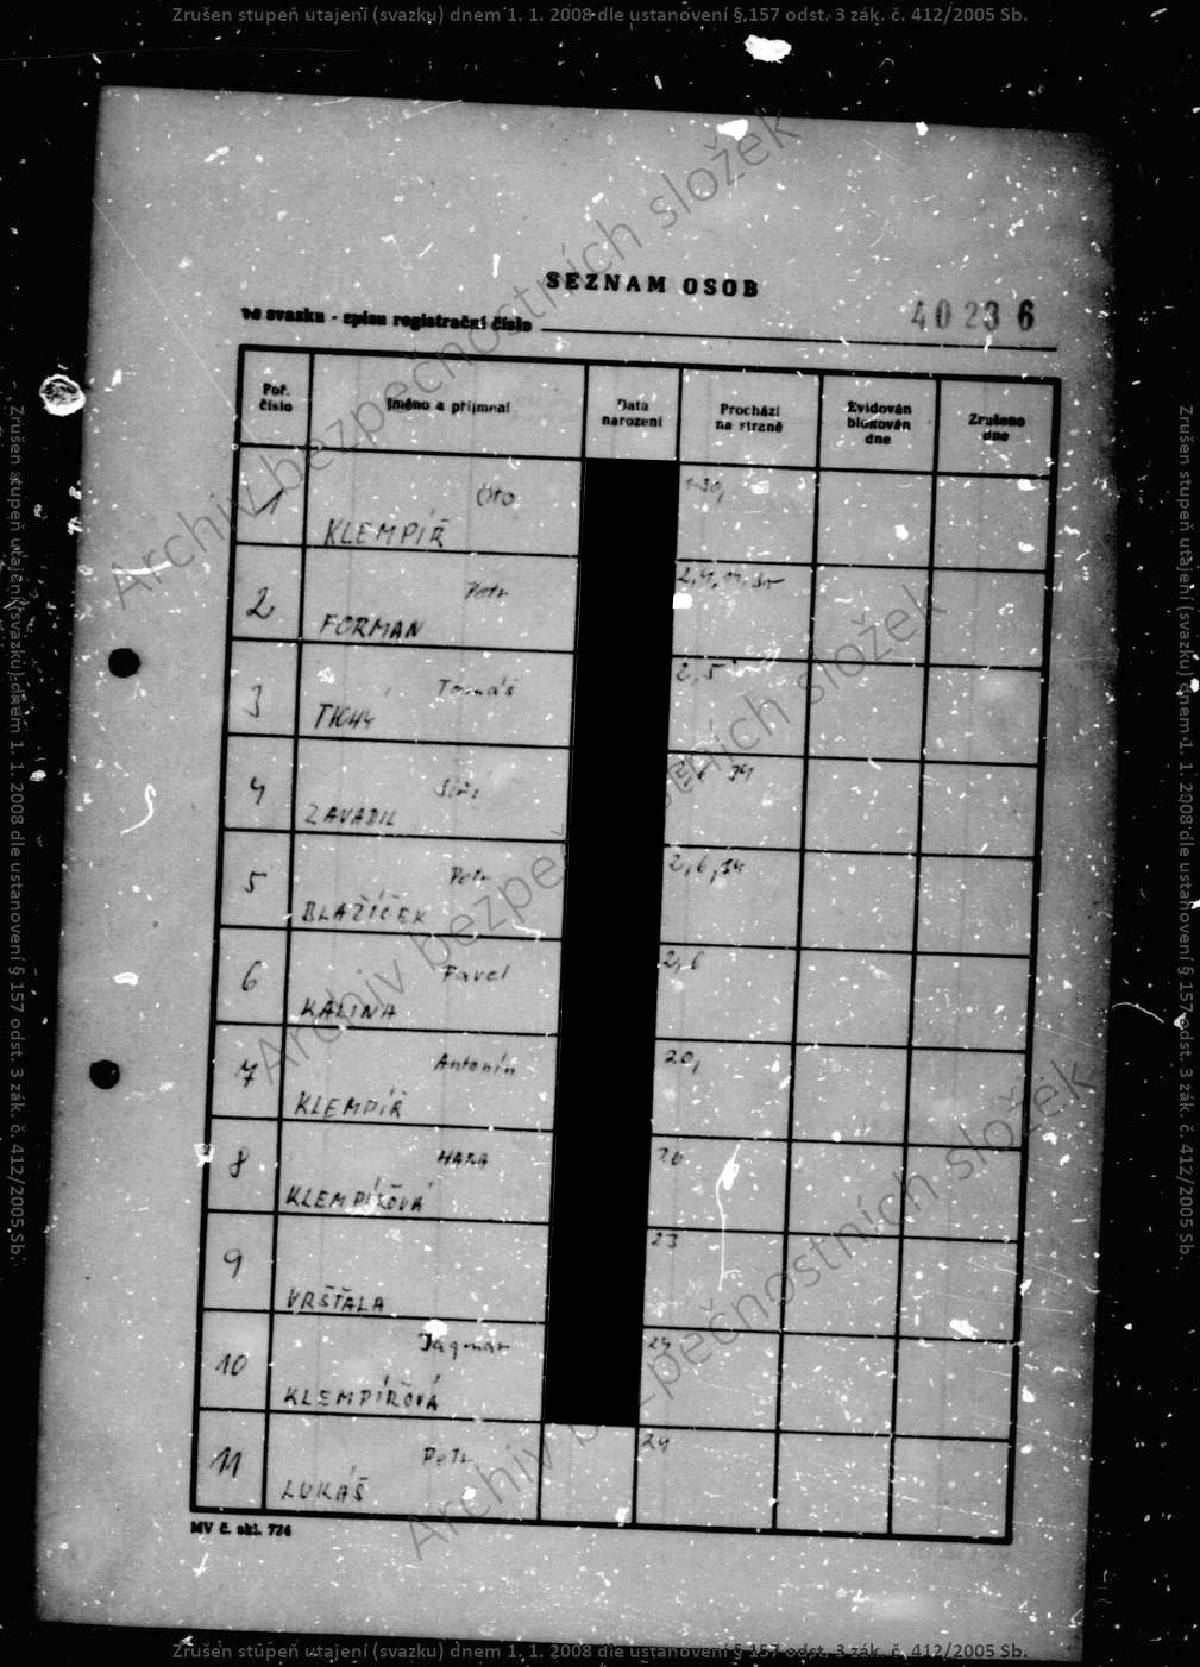 Zrušen stupeň utajení (svazku) dnem 1. 1. 2008 dle ustanovení § 157 odst. 3 zák. č. 412/2005 Sb.
SEZNAM OSOB
ve svazku - spisu registrační číslo 40236
Poř. číslo
Jméno a příjmení
Data narození
Prochází na straně
Evidován blokován dne
Zrušeno dne
1 Oto 1-30,
KLEMPÍŘ
2 Petr
FORMAN
3 Tomáš 2,5
TICHÝ
4 Jiří
ZAVADIL
5 Petr 2,6,34
BLAŽÍČEK
6 Pavel 2,6
KALINA
7 Antonín 20,
KLEMPÍŘ
8 HANA
KLEMPÍŘOVÁ
9 23
VRŠŤALA
10 Dagmar 24
KLEMPÍŘOVÁ
11 Petr 24
LUKÁŠ
MV č. skl. 724
Archiv bezpečnostních složek
Archiv bezpečnostních složek
Archiv bezpečnostních složek
Zrušen stupeň utajení (svazku) dnem 1. 1. 2008 dle ustanovení § 157 odst. 3 zák. č. 412/2005 Sb.
Zrušen stupeň utajení (svazku) dnem 1. 1. 2008 dle ustanovení § 157 odst. 3 zák. č. 412/2005 Sb.
Zrušen stupeň utajení (svazku) dnem 1. 1. 2008 dle ustanovení § 157 odst. 3 zák. č. 412/2005 Sb.